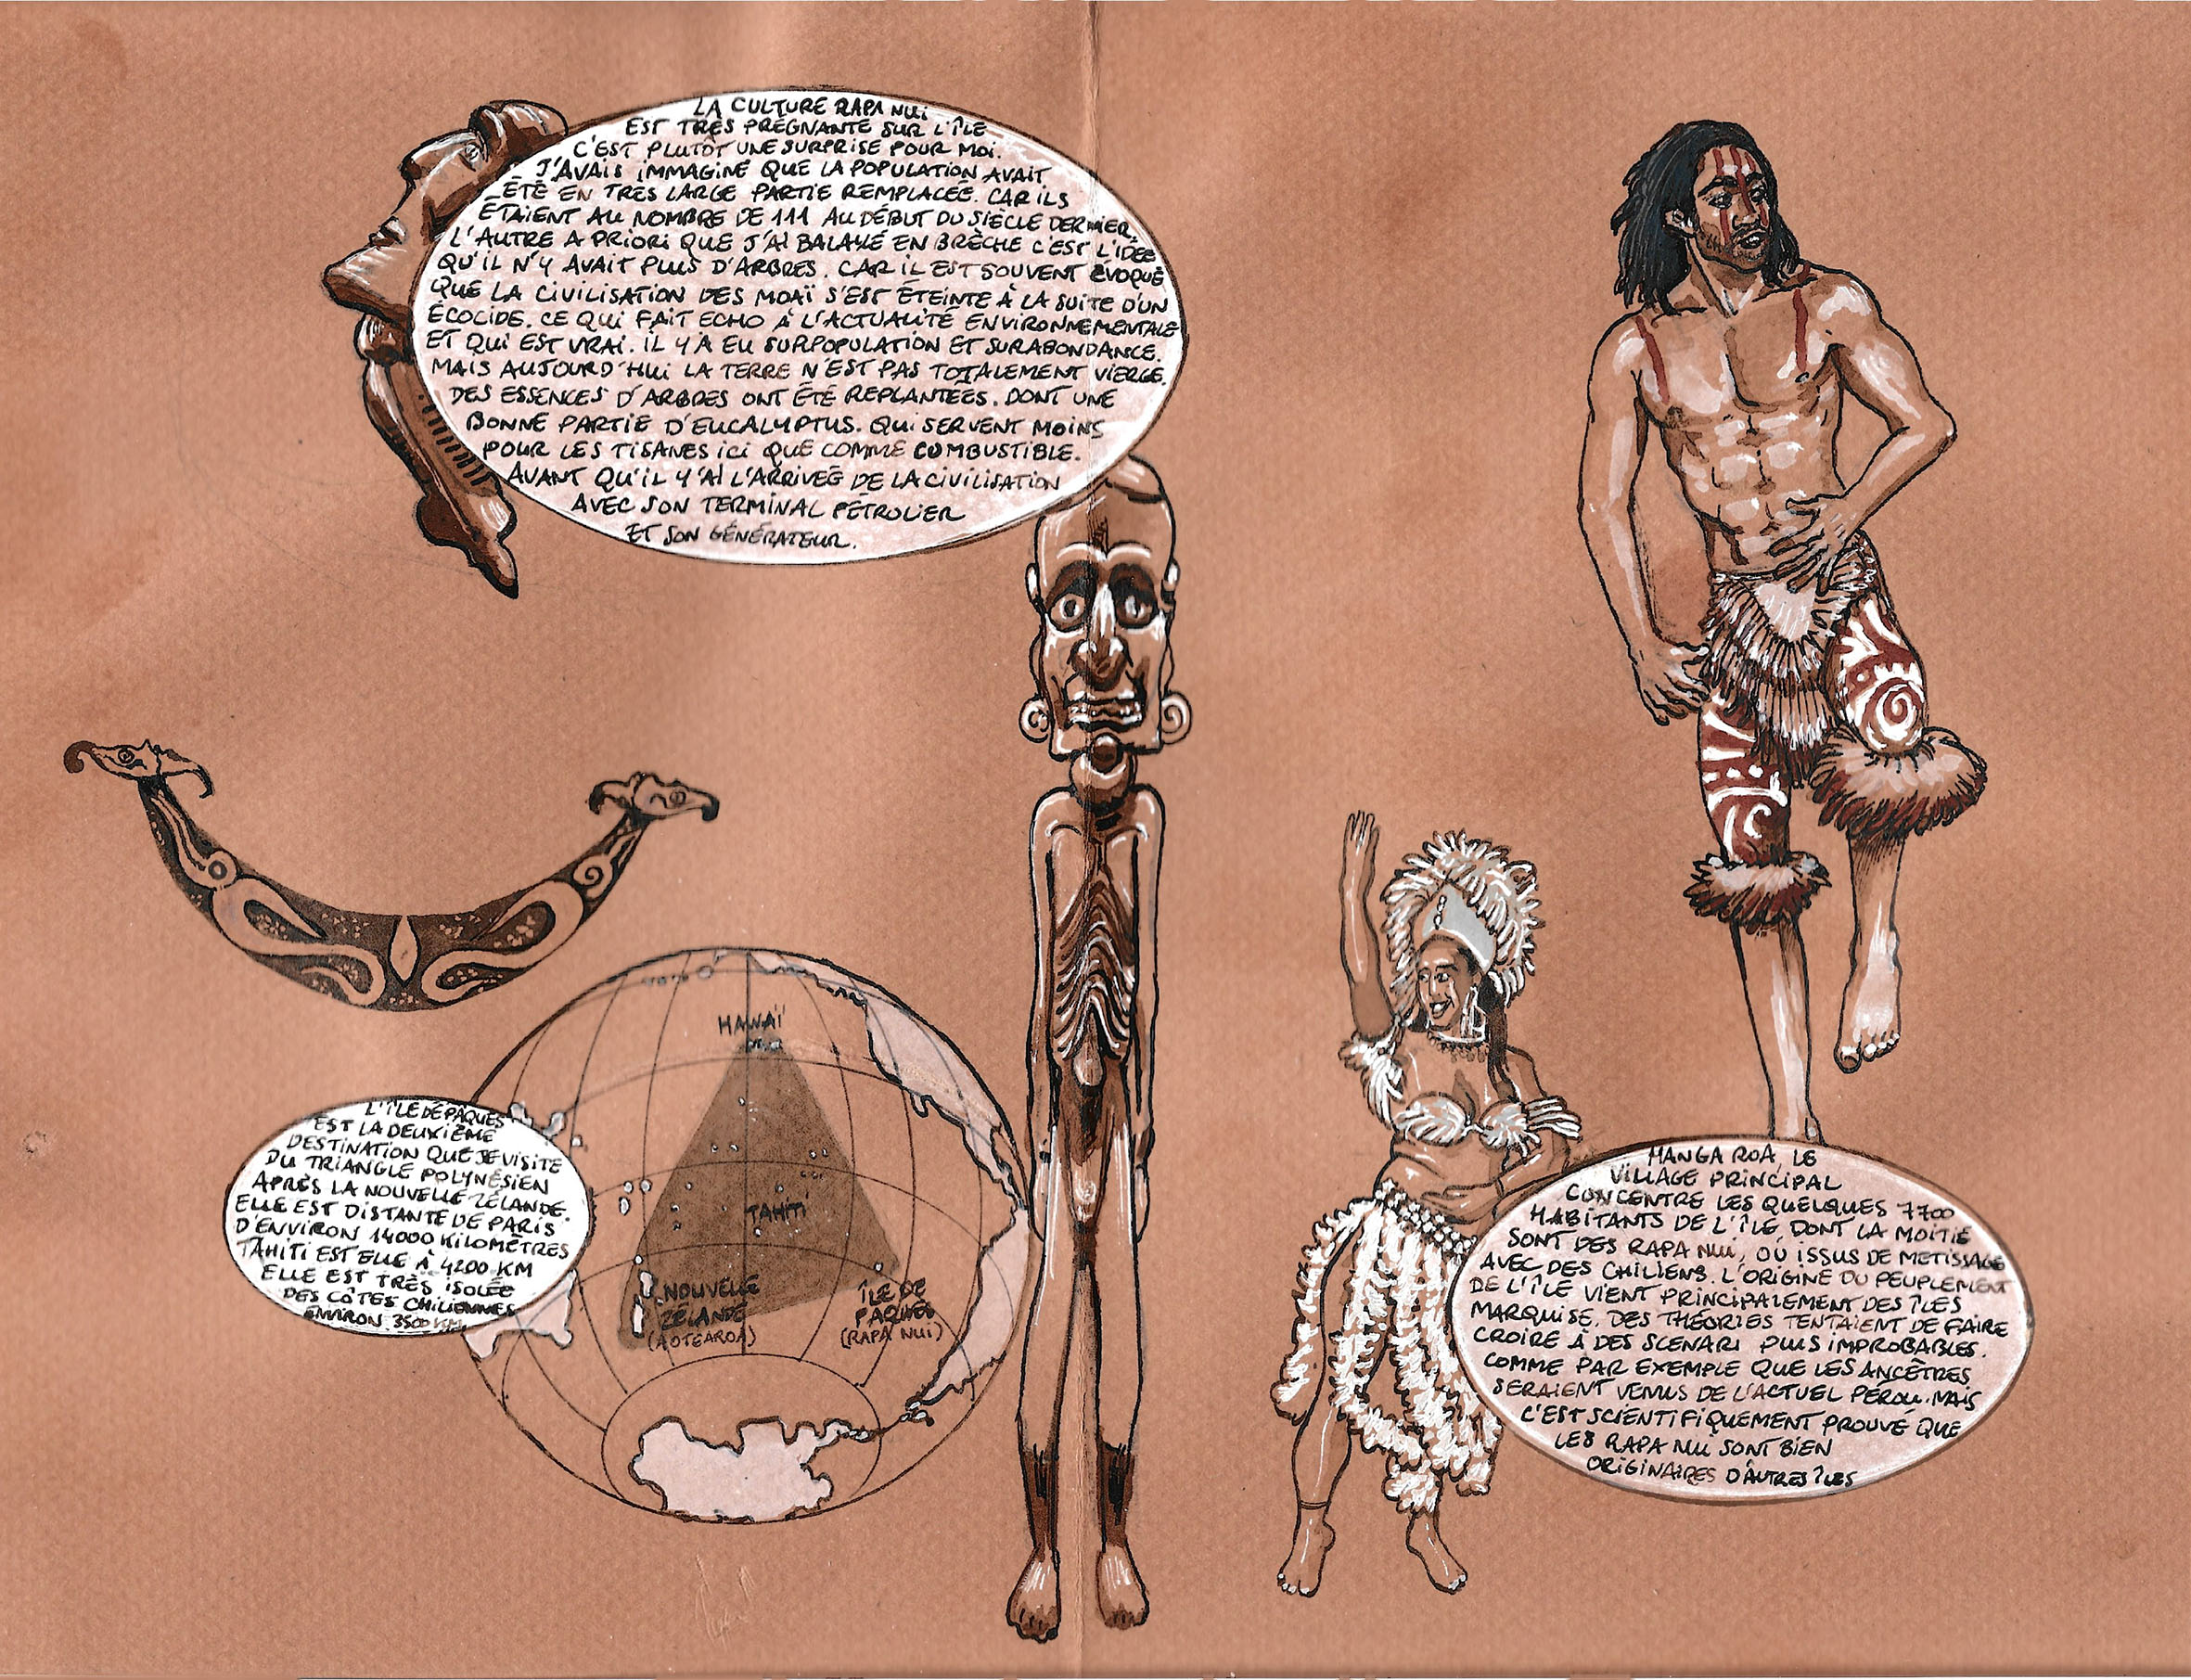 LA CULTURE RAPA NUI
EST TRÈS PRÉGNANTE SUR L'ÎLE
C'EST PLUTÔT UNE SURPRISE POUR MOI.
J'AVAIS IMMAGINÉ QUE LA POPULATION AVAIT
ÉTÉ EN TRÈS LARGE PARTIE REMPLACÉE. CAR ILS
ÉTAIENT AU NOMBRE DE 111 AU DÉBUT DU SIÈCLE DERNIER.
L'AUTRE A PRIORI QUE J'AI BALAYÉ EN BRÈCHE C'EST L'IDÉE
QU'IL N'Y AVAIT PLUS D'ARBRES. CAR IL EST SOUVENT ÉVOQUÉ
QUE LA CIVILISATION DES MOAÏ S'EST ÉTEINTE À LA SUITE D'UN
ÉCOCIDE. CE QUI FAIT ECHO À L'ACTUALITÉ ENVIRONNEMENTALE
ET QUI EST VRAI. IL Y A EU SURPOPULATION ET SURABONDANCE.
MAIS AUJOURD'HUI LA TERRE N'EST PAS TOTALEMENT VIERGE.
DES ESSENCES D'ARBRES ONT ÉTÉ REPLANTÉES. DONT UNE
BONNE PARTIE D'EUCALYPTUS. QUI SERVENT MOINS
POUR LES TISANES ICI QUE COMME COMBUSTIBLE.
AVANT QU'IL Y'AI L'ARRIVÉE DE LA CIVILISATION
AVEC SON TERMINAL PÉTROLIER
ET SON GÉNÉRATEUR.
HAWAÏ
TAHITI
NOUVELLE
ZÉLANDE
(AOTEAROA)
ÎLE DE
PAQUES
(RAPA NUI)
L'ÎLE DE PÂQUES
EST LA DEUXIÈME
DESTINATION QUE JE VISITE
DU TRIANGLE POLYNÉSIEN
APRÈS LA NOUVELLE ZÉLANDE.
ELLE EST DISTANTE DE PARIS
D'ENVIRON 14000 KILOMÈTRES
TAHITI EST ELLE À 4200 KM
ELLE EST TRÈS ISOLÉE
DES CÔTES CHILIENNES
ENVIRON 3500 KM.
HANGA ROA, LE
VILLAGE PRINCIPAL
CONCENTRE LES QUELQUES 7700
HABITANTS DE L'ÎLE, DONT LA MOITIÉ
SONT DES RAPA NUI, OU ISSUS DE METISSAGE
AVEC DES CHILIENS. L'ORIGINE DU PEUPLEMENT
DE L'ÎLE VIENT PRINCIPALEMENT DES ÎLES
MARQUISE. DES THÉORIES TENTAIENT DE FAIRE
CROIRE À DES SCENARI PLUS IMPROBABLES.
COMME PAR EXEMPLE QUE LES ANCÊTRES
SERAIENT VENUS DE L'ACTUEL PÉROU. MAIS
C'EST SCIENTIFIQUEMENT PROUVÉ QUE
LES RAPA NUI SONT BIEN
ORIGINAIRES D'AUTRES ÎLES